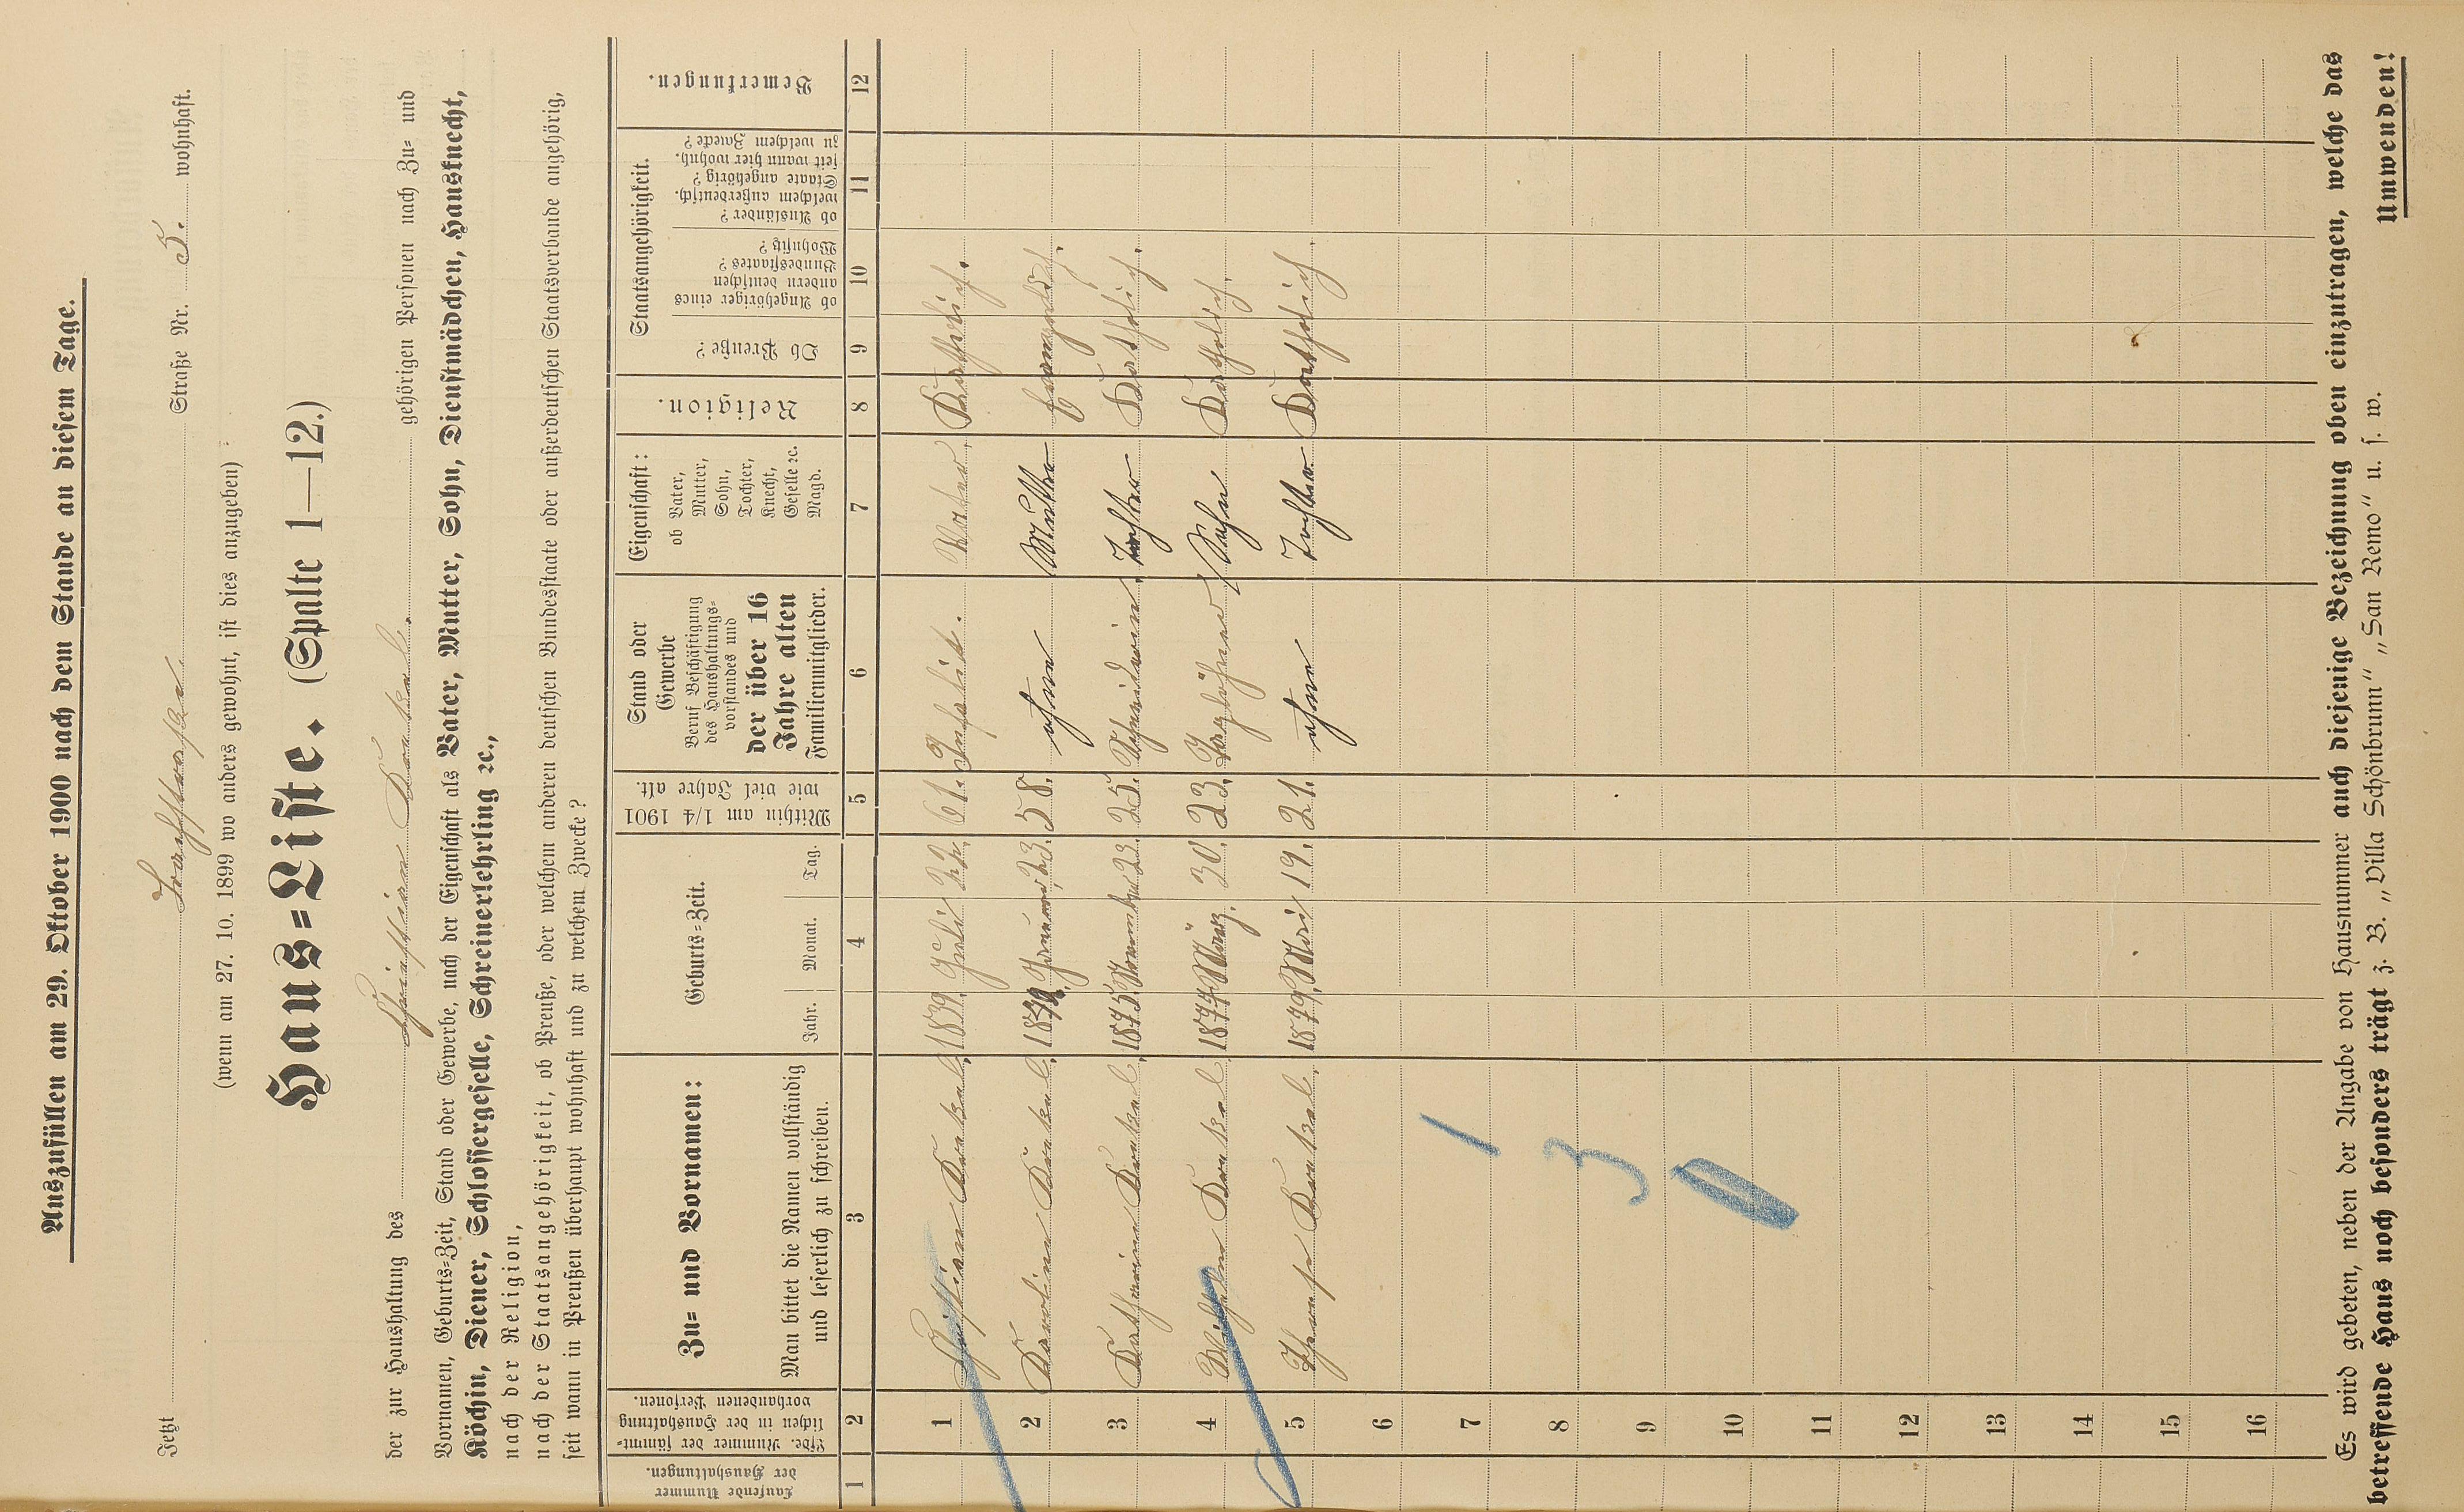 Auszufüllen am 29. Oktober 1900 nach dem Stande an diesem Tage.
Jetzt Straße Nr. 5. wohnhaft.
(wenn am 27. 10. 1899 wo anders gewohnt, ist dies anzugeben)
Haus=Liste. (Spalte 1—12.)
der zur Haushaltung des Christian Kunkel. gehörigen Personen nach Zu= und
Vornamen, Geburts=Zeit, Stand oder Gewerbe, nach der Eigenschaft als Vater, Mutter, Sohn, Dienstmädchen, Hausknecht,
Köchin, Diener, Schlossergeselle, Schreinerlehrling ꝛc.,
nach der Religion,
nach der Staatsangehörigkeit, ob Preuße, oder welchem anderen deutschen Bundesstaate oder außerdeutschen Staatsverbande angehörig,
seit wann in Preußen überhaupt wohnhaft und zu welchem Zwecke?
Laufende Nummer der Haushaltungen.
Lfde. Nummer der sämmtlichen in der Haushaltung vorhandenen Personen.
Zu= und Vornamen:
Man bittet die Namen vollständig
und leserlich zu schreiben.
Geburts=Zeit.
Jahr. Monat. Tag.
Mithin am 1/4 1901
wie viel Jahre alt.
Stand oder
Gewerbe
Beruf Beschäftigung
des Haushaltungs=
vorstandes und
der über 16
Jahre alten
Familienmitglieder.
Eigenschaft:
ob Vater,
Mutter,
Sohn,
Tochter,
Knecht,
Geselle ꝛc.
Magd.
Religion.
Staatsangehörigkeit.
Ob Preuße?
ob Angehöriger eines
andern deutschen
Bundesstaates?
Wohnsitz?
ob Ausländer?
welchem außerdeutsch.
Staate angehörig?
seit wann hier wohnh.
zu welchem Zwecke?
Bemerkungen.
1 2 3 4 5 6 7 8 9 10 11 12
1 Christian Kunkel, 1839. Juli 22. 61. Invalid. Vater, Katholisch.
2 Karolina Kunkel, Januar 23. 58. ohne Mutter evangelisch.
3 Katharina Kunkel, 1875 November 23. 25. Schneiderin, Tochter Katholisch.
4 Wilhelm Kunkel, 1877 März. 30. 23. Taglöhner, Sohn Katholisch.
5 Kunkel. 1879. Mai 19. 21. ohne Tochter Katholisch.
6
7
8
9
10
11
12
13
14
15
16
1
3
0
Es wird gebeten, neben der Angabe von Hausnummer auch diejenige Bezeichnung oben einzutragen, welche das
betreffende Haus noch besonders trägt z. B. „Villa Schönbrunn" „San Remo" u. s. w.
Umwenden!